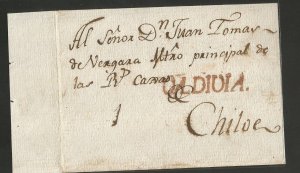 Al Señor Dn. Juan Tomas
de Vergara Mtro principal de
las Rs. Caxas
VALDIVIA.
1 &
Chiloe